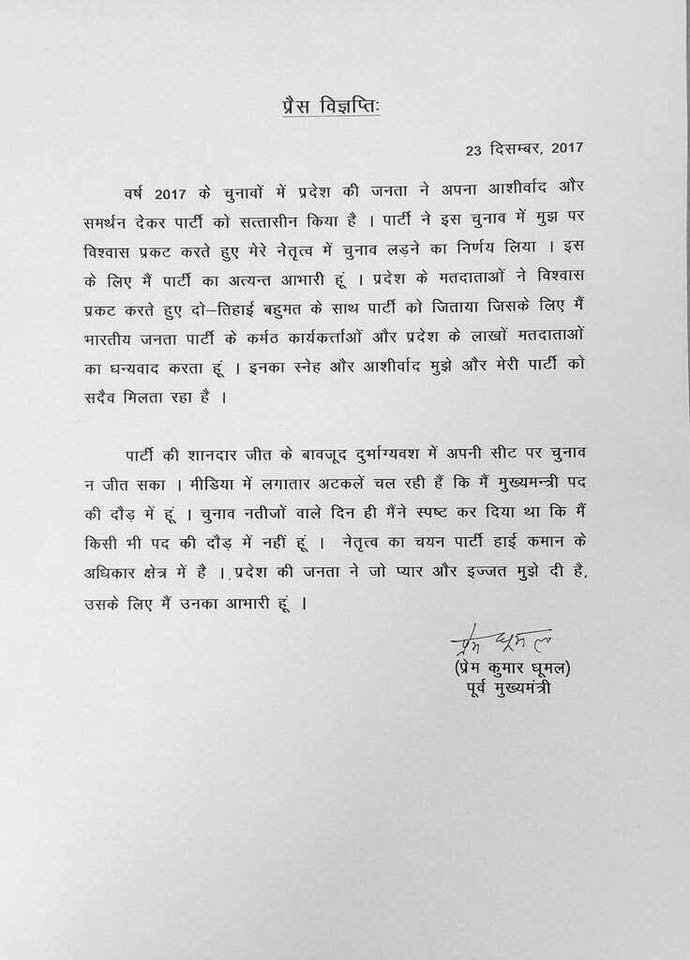 प्रैस विज्ञप्तिः
23 दिसम्बर, 2017
वर्ष 2017 के चुनावों में प्रदेश की जनता ने अपना आशीर्वाद और
समर्थन देकर पार्टी को सत्तासीन किया है । पार्टी ने इस चुनाव में मुझ पर
विश्वास प्रकट करते हुए मेरे नेतृत्व में चुनाव लड़ने का निर्णय लिया । इस
के लिए मैं पार्टी का अत्यन्त आभारी हूं । प्रदेश के मतदाताओं ने विश्वास
प्रकट करते हुए दो–तिहाई बहुमत के साथ पार्टी को जिताया जिसके लिए मैं
भारतीय जनता पार्टी के कर्मठ कार्यकर्त्ताओं और प्रदेश के लाखों मतदाताओं
का धन्यवाद करता हूं । इनका स्नेह और आशीर्वाद मुझे और मेरी पार्टी को
सदैव मिलता रहा है ।
पार्टी की शानदार जीत के बावजूद दुर्भाग्यवश में अपनी सीट पर चुनाव
न जीत सका । मीडिया में लगातार अटकलें चल रही हैं कि मैं मुख्यमन्त्री पद
की दौड़ में हूं । चुनाव नतीजों वाले दिन ही मैंने स्पष्ट कर दिया था कि मैं
किसी भी पद की दौड़ में नहीं हूं । नेतृत्व का चयन पार्टी हाई कमान के
अधिकार क्षेत्र में है । प्रदेश की जनता ने जो प्यार और इज्जत मुझे दी है,
उसके लिए मैं उनका आभारी हूं ।
प्रेम धूमल
(प्रेम कुमार धूमल)
पूर्व मुख्यमंत्री